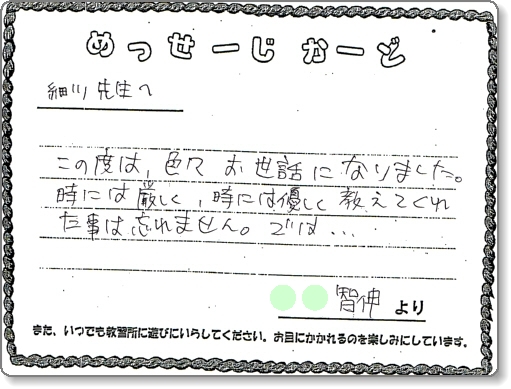 めっせーじかーど
細川先生へ
この度は、色々お世話になりました。
時には厳しく、時には優しく教えてくれ
た事は忘れません。では...
智伸 より
また、いつでも教習所に遊びにいらしてください。お目にかかれるのを楽しみにしています。